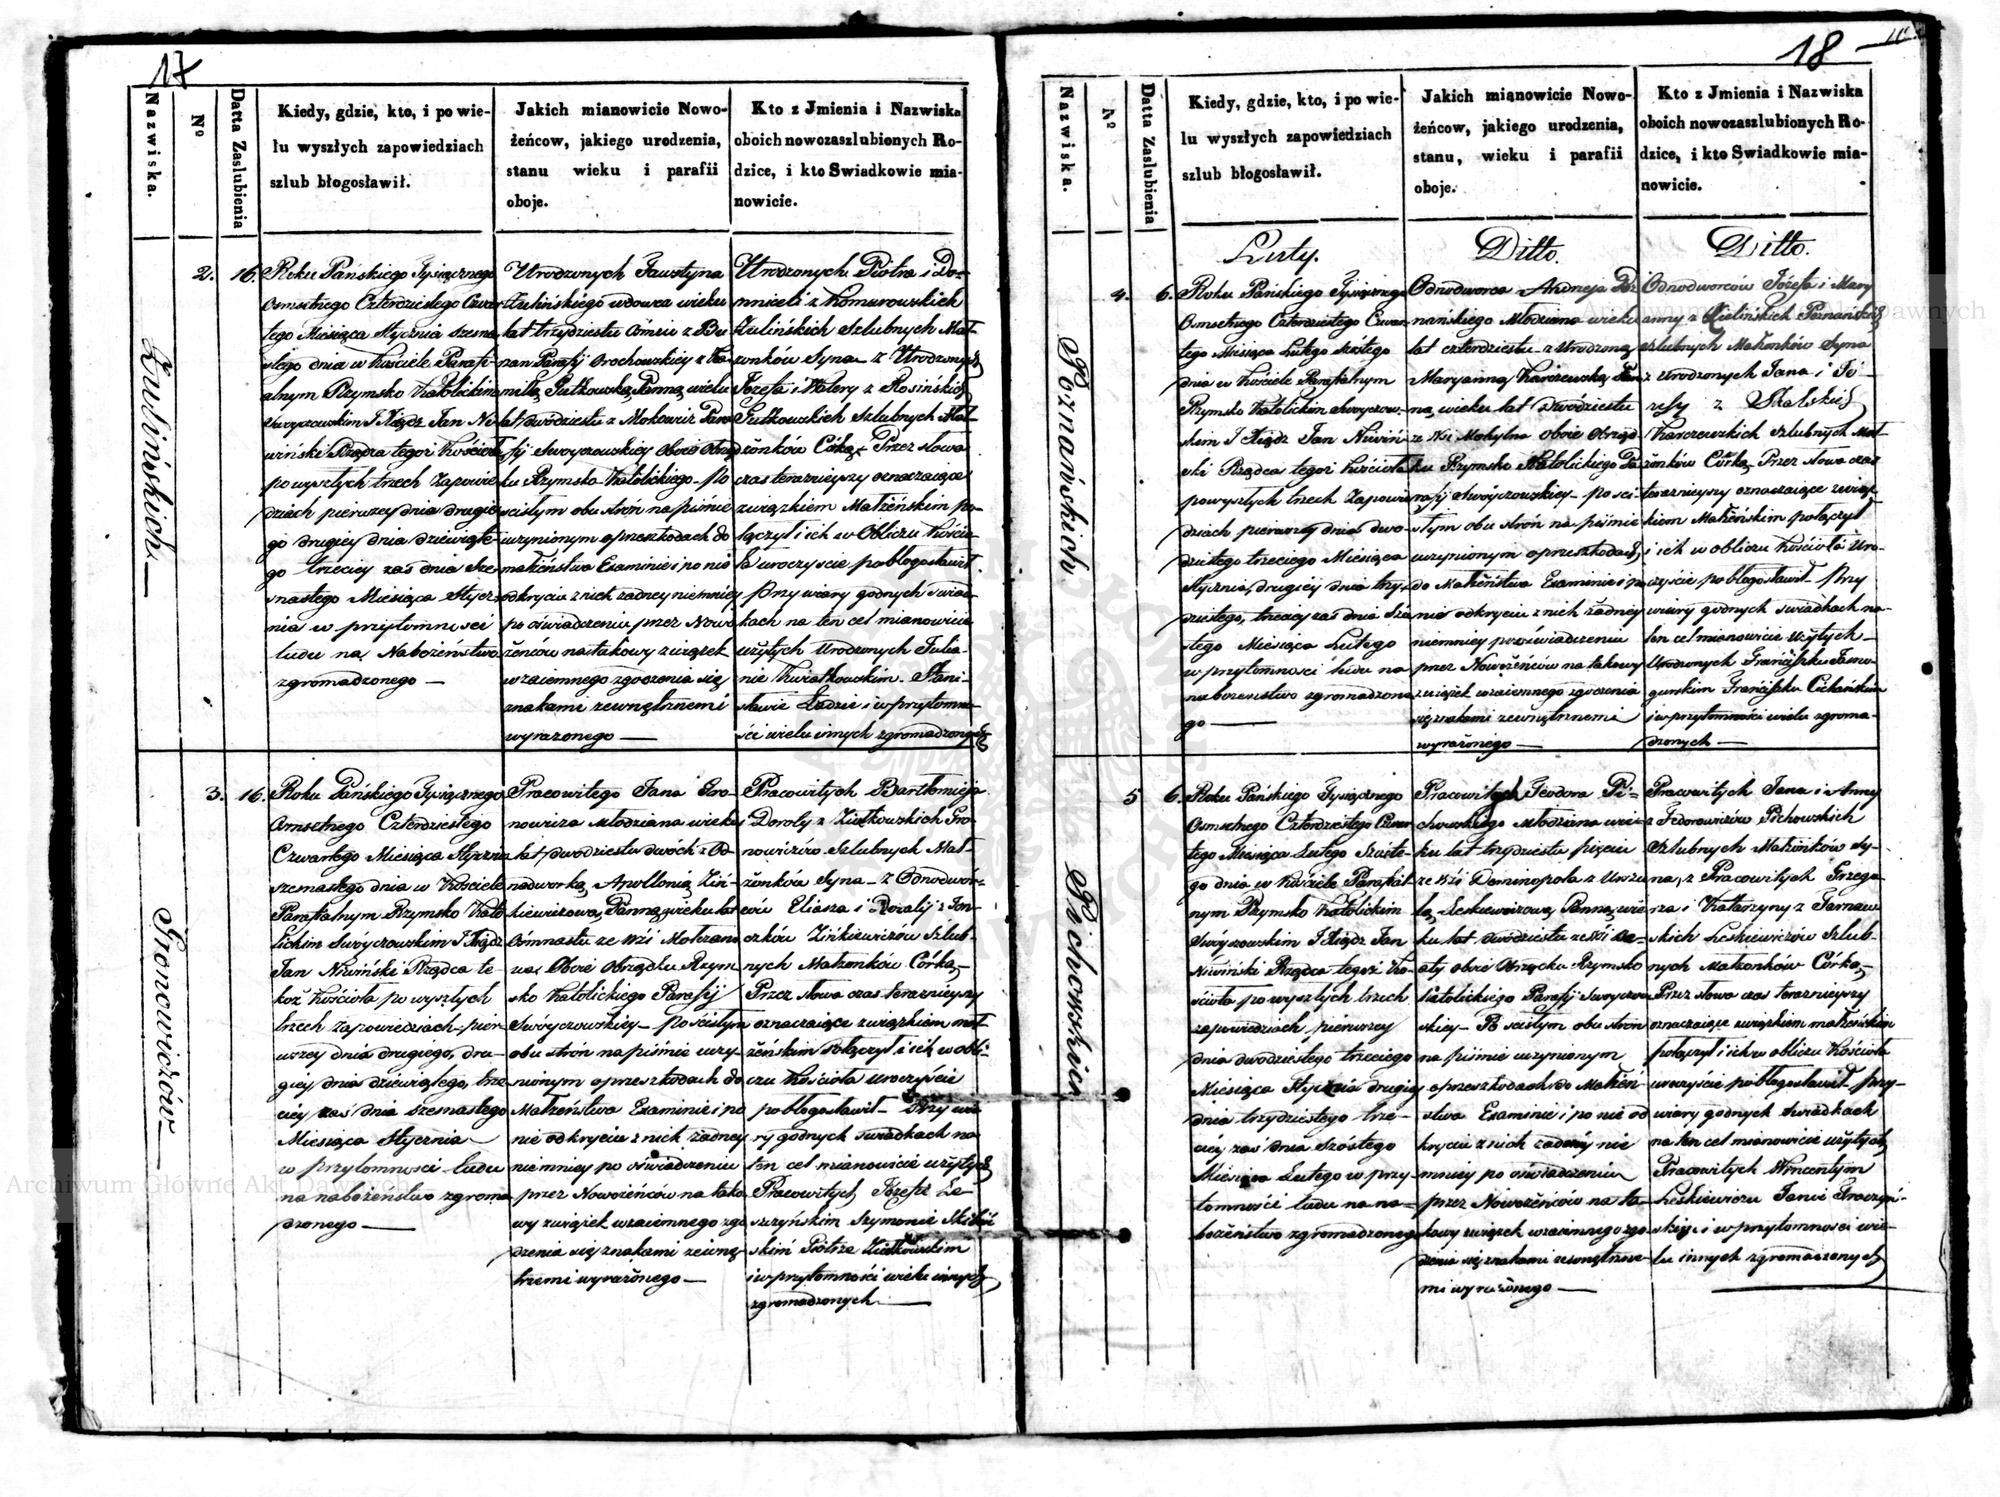 17
Nazwiska.
Nº
Datta Zaslubienia
Kiedy, gdzie, kto, i po wie-
lu wyszłych zapowiedziach
szlub błogosławił.
Jakich mianowicie Nowo-
żeńcow, jakiego urodzenia,
stanu wieku i parafii
oboje.
Kto z Jmienia i Nazwiska
oboich nowozaszlubionych Ro-
dzice, i kto Swiadkowie mia-
nowicie.
Żulińskich
2.
16.
Roku Pańskiego Tysiącznego
Osmsetnego Czterdziestego Czwar
tego Miesiąca Stycznia szesna
stego dnia w Kościele Parafi-
alnym Rzymsko Katolickim
Swoyczowskim J Xiądz Jan Ni
wiński Rządca tegoż Kościoła
po wyszłych trzech Zapowie
dziach pierwszey dnia drugie
go drugiey dnia dziewiąte
go trzeciey zaś dnia Sze
snastego Miesiąca Stycz
nia w przytomności
ludu na Nabożeństwo
zgromadzonego
Urodzonych Faustyna
Żulińskiego wdowca wieku
lat trzydziestu ośmiu z Bu
zan Parafij Orochowskiey z Ka
milą Gutkowską Panną wieku
lat dwódziestu z Mokowiz Para
fij Swoyczowskiey Oboie Obrząd
ku Rzymsko-Katolickiego- Po
scisłym obu strón na piśmie
uczynionym o przeszkodach do
małżeństwa Examinie i po nie
odkryciu z nich żadney niemniey
po oświadczeniu przez Nowo
żeńców na takowy związek
wzaiemnego zgodzenia się
znakami zewnętrznemi
wyrażonego
Urodzonych Piotra i Do-
mniceli z Komarowskich
Żulińskich Szlubnych Mał-
żonków Syna z Urodzonych
Józefa i Walery z Rosińskich
Gutkowskich Szlubnych Mał
żonków Córką- Przez słowa
czas teraznieyszy oznaczaiące
związkiem Małżeńskim po-
łączył i ich w Obliczu Kościo
ła uroczyscie pobłogosławił.
Przy wiary godnych świad-
kach na ten cel mianowicie
użytych Urodzonych Julia-
nie Kwiatkowskim. Stani-
sławie Ładzie i w przytomno-
ści wielu innych zgromadzonych
Gronowiczów
3.
16.
Roku Pańskiego Tysiącznego
Osmsetnego Czterdziestego
Czwartego Miesiąca Stycznia
szesnastego dnia w Kościele
Parafialnym Rzymsko Kato
lickim Swóyczowskim J Xiądz
Jan Niwiński Rządca te-
goż Kościoła po wyszłych
trzech Zapowiedziach- pier
wszey dnia drugiego, dru-
giey dnia dziewiątego, trze
ciey zaś dnia szesnastego
Miesiąca Stycznia
w przytomności ludu
na nabożeństwo zgroma
dzonego
Pracowitego Jana Gro-
nowicza Młodziana wieku
lat dwódziestu dwóch z Od-
nadworką Apollonią Ziń-
kiewiczową Panną wieku lat
Ośmnastu ze Wsi Motzano
wa Oboie Obrządku Rzym
sko Katolickiego Parafij
Swóyczowskiey- po ścisłym
obu strón na piśmie uczy-
nionym o przeszkodach do
Małżeństwa Examinie i po
nie odkryciu z nich żadney
niemniey po oświadczeniu
przez Nowożeńców na tako
wy związek wzaiemnego zgo
dzenia się znakami zewnę-
trznemi wyrażonego
Pracowitych Bartłomieja
i Doroty z Ziułkowskich Gro-
nowiczów Szlubnych Mał-
żonków Syna- z Odnodwor-
ców Eliasza i Rozalij z Jon-
czków Zińkiewiczów Szlub-
nych Małżonków Córką,-
Przez słowa czas teraznieyszy
oznaczaiące związkiem mał
żeńskim Połączył i ich w obli-
czu Kościoła Uroczyście
pobłogosławił- Przy wia
ry godnych swiadkach na
ten cel mianowicie użytych
Pracowitych Józefie Le-
szczyńskim Szymonie
skim Piotrze Ziułkowskim
i w przytomności wielu innych
zgromadzonych
18
Nazwiska.
Nº
Datta Zaslubienia
Kiedy, gdzie, kto, i po wie-
lu wyszłych zapowiedziach
szlub błogosławił.
Jakich mianowicie Nowo-
żeńcow, jakiego urodzenia,
stanu, wieku i parafii
oboje.
Kto z Jmienia i Nazwiska
oboich nowozaszlubionych Ro-
dzice, i kto Swiadkowie mia-
nowicie.
Luty.
Ditto.
Ditto.
Poznańskich
4.
6.
Roku Pańskiego Tysiącznego
Osmsetnego Czterdziestego Czwar-
tego Miesiąca Lutego szóstego
dnia w Kościele Parafialnym
Rzymsko Katolickim Swoyczow-
skim J Xiądz Jan Niwiń-
ski Rządca tegoż Kościoła
po wyszłych trzech Zapowie
dziach pierwszey dnia dwo
dziestego trzeciego Miesiąca
Stycznia, drugiey dnia trzy-
dziestego, trzeciey zaś dnia Szó
stego Miesiąca Lutego
w przytomności ludu na
nabożeństwo zgromadzone
go
Odnodworca Andrzeja Po
znańskiego Młodziana wieku
lat czterdziestu- z Urodzoną
Maryanną Karczewską Pan
ną, wieku lat Dwódziestu
ze Wsi Mohylna oboie Obrząd
ku Rzymsko Katolickiego Pa
rafij Swóyczowskiey- po sci-
słym obu strón na piśmie
uczynionym o przeszkodach
do Małżeństwa Examinie i po
nie odkryciu z nich żadney
niemniey po oświadczeniu
przez Nowożeńców na takowy
związek wzaiemnego zgodzenia
się znakami zewnętrznemi
wyrażonego
Odnodworców Józefa i Mary
anny z Zielińskich Poznańskich
Szlubnych Małżonków Syna
z Urodzonych Jana i Jó-
zefy z Skalskich
Karczewskich szlubnych Mał-
żonków Córką Przez słowa czas
teraznieyszy oznaczaiące związ
kiem Małżeńskim połączył
i ich w obliczu Kościoła Uro-
czyście pobłogosławił- Przy
wiary godnych swiadkach na
ten cel mianowicie użytych-
Urodzonych Franciszku Jasno-
gurskim Franciszku Cichańskim
i w przytomności wielu zgroma-
dzonych
Pichowskich
5
6.
Roku Pańskiego Tysiącznego
Osmsetnego Czterdziestego Czwar
tego Miesiąca Lutego Szóste-
go dnia w Kościele Parafial-
nym Rzymsko Katolickim
Swóyczowskim J Xiądz Jan
Niwiński Rządca tegoż Ko-
ścioła po wyszłych trzech
zapowiedziach pierwszey
dnia dwodziestego trzeciego
Miesiąca Stycznia drugiey
dnia trzydziestego trze-
ciey zaś dnia Szóstego
Miesiąca Lutego w przy
tomności ludu na na-
bożeństwo zgromadzonego
Pracowitych Teodora Pi-
chowskiego Młodziana wie-
ku lat trzydziestu pięciu
ze Wsi Dominopola z Urszu
lą Leskiewiczową Panną wie
ku lat dwódziestu ze Wsi
oboie Obrządku Rzymsko
Katolickiego Parafij Swoyczow
skiey- Po ścisłym obu strón
na piśmie uczynionym
o przeszkodach do Małżeń-
stwa Examinie i po nie od
kryciu z nich żadney nie
mniey po oświadczeniu
przez Nowożeńców na ta-
kowy związek wzaiemnego zgo
dzenia się znakami zewnętrzne-
mi wyrażonego
Pracowitych Jana i Anny
z Fedorowiczów Pichowskich
Szlubnych Małżonków Sy-
na, z Pracowitych Grzego
rza i Katarzyny z Tarnaw
skich Leskiewiczów Szlub-
nych Małżonków Córką,-
Przez słowa czas teraznieyszy
oznaczaiące związkiem małżeńskim
połączył i ich w obliczu Kościoła
uroczyście pobłogosławił- przy-
wiary godnych świadkach
na ten cel mianowicie użytych
Pracowitych Wincentym
Leskiewiczu Janie Graczyń-
skim i w przytomności wie-
lu innych zgromadzonych
Archiwum Główne Akt Dawnych
Archiwum Główne Akt Dawnych